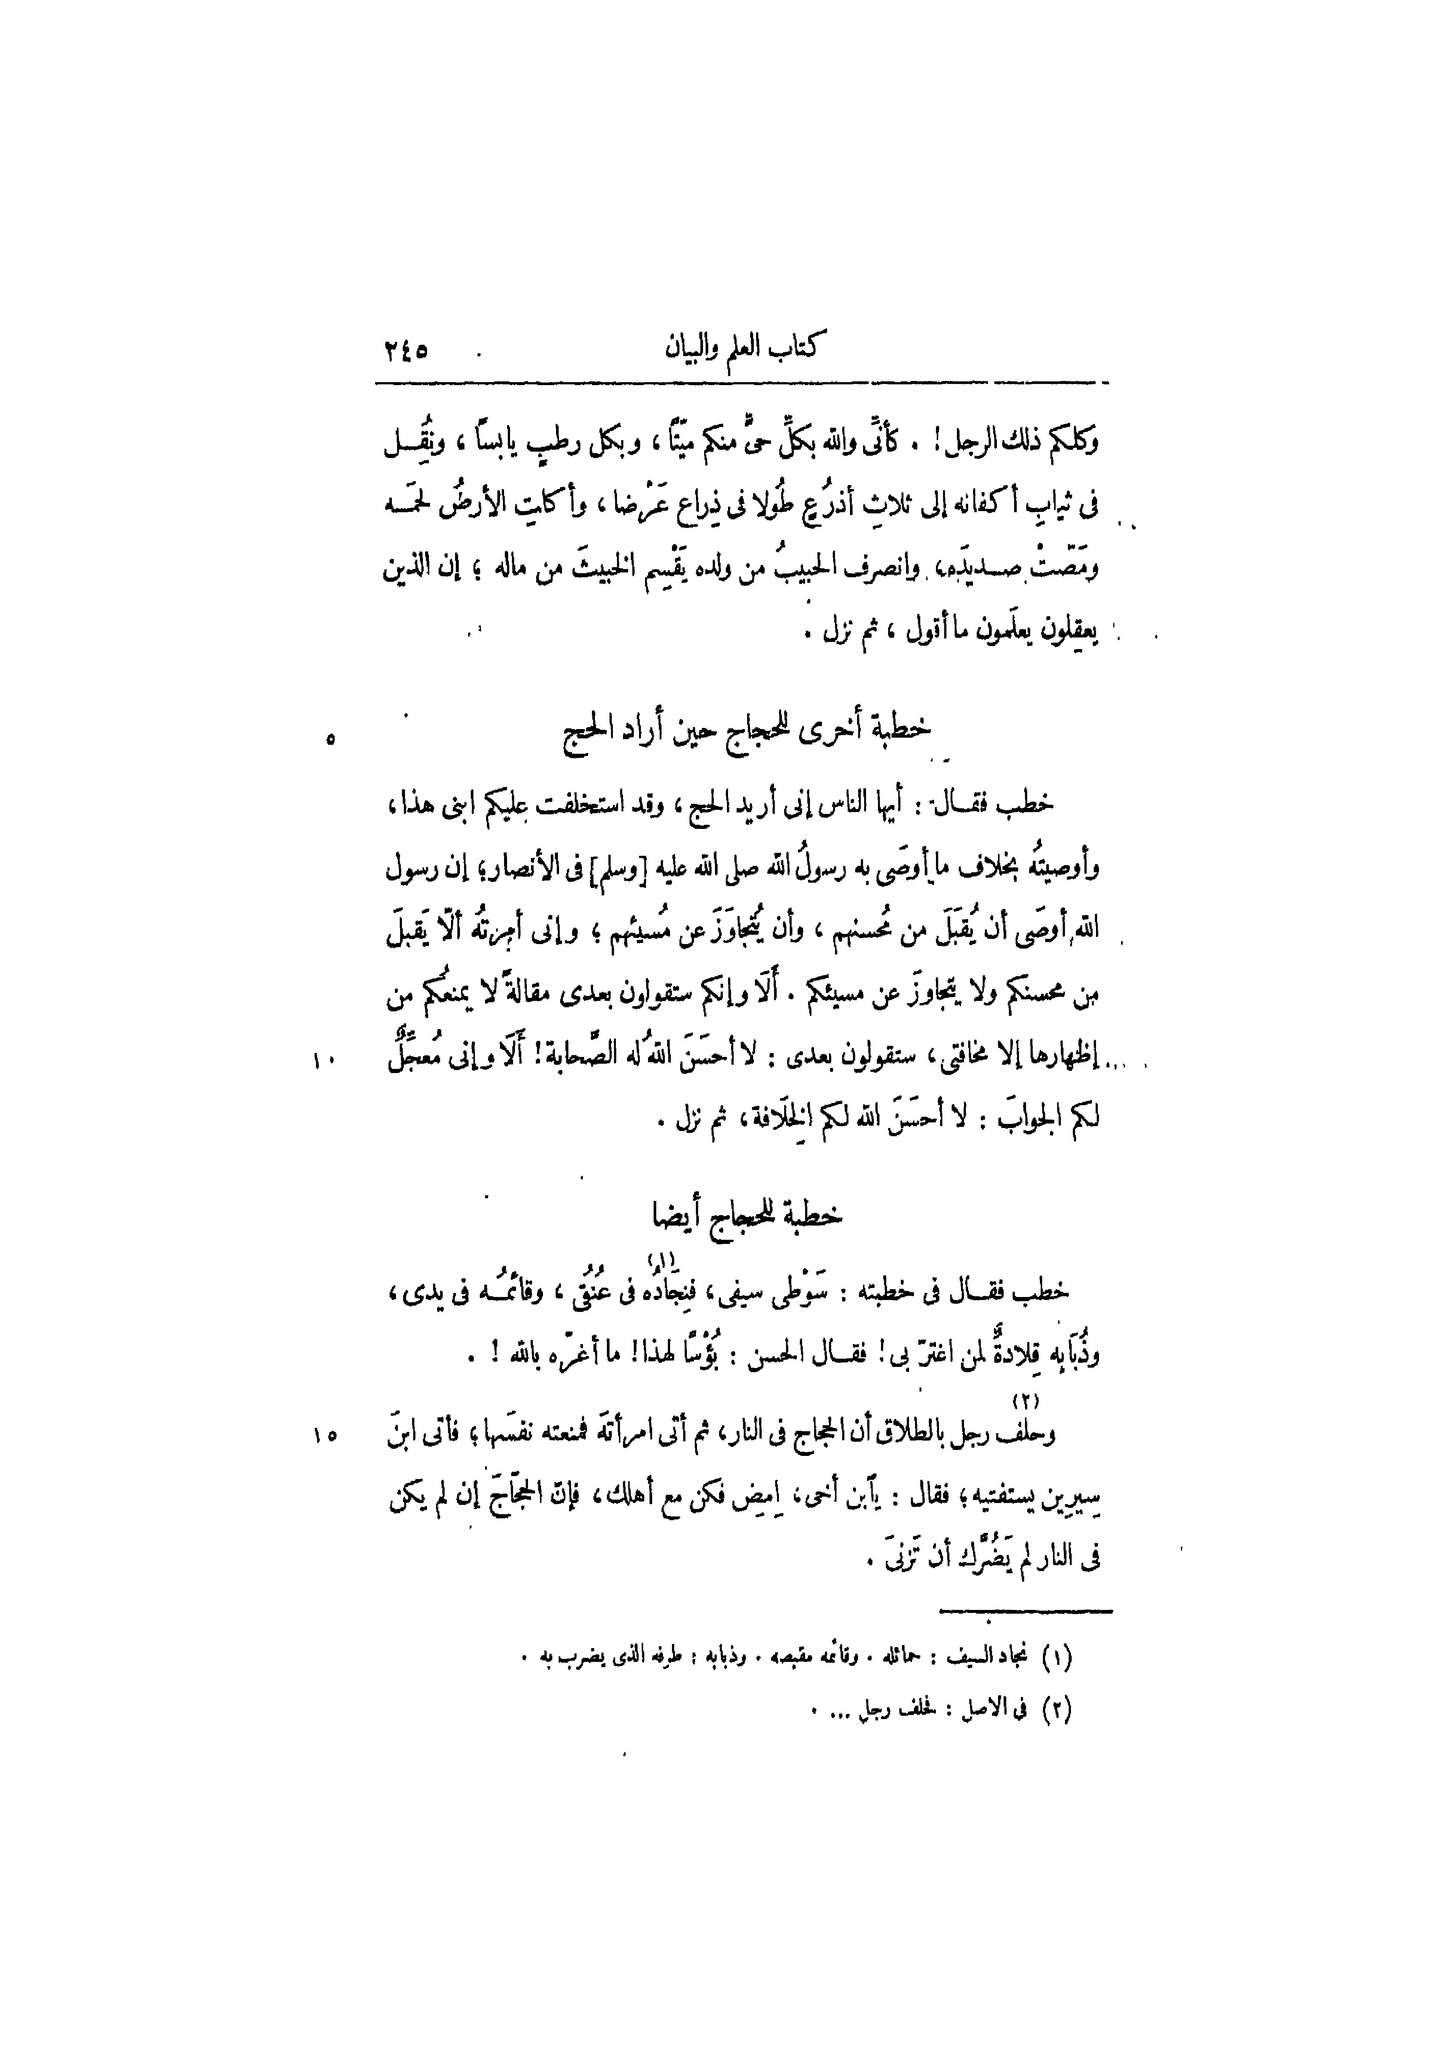 كتاب العلم والبيان ٢٤٥
وكلكم ذلك الرجل! . كأنّى والله بكلِّ حىٍّ منكم ميّتًا، وبكل رطبٍ يابسًا، ونُقِـل
فى ثيابِ أكفانه إلى ثلاثِ أذرُعٍ طُولا فى ذِراع عَرْضا، وأكلتِ الأرضُ لحمَـه
ومَصّتْ صـديدَه، وانصرف الحبيبُ من ولده يَقْسِم الخبيثَ من ماله؛ إن الذين
يعقِلون يعلَمون ما أقول، ثم نزل .
خطبة أخرى للحجاج حين أراد الحج ٥
خطب فقـال : أيها الناس إنى أريد الحج، وقد استخلفت عليكم ابنى هذا،
وأوصيتُه بخلاف ما أوصَى به رسولُ الله صلى الله عليه [وسلم] فى الأنصار؛ إن رسول
الله أوصَى أن يُقبَلَ من مُحسنهم، وأن يُتجاوَزَ عن مُسيئهم؛ وإنى أمرتُه ألّا يَقبلَ
من محسنكم ولا يتجاوزَ عن مسيئكم . أَلَا وإنكم ستقولون بعدى مقالةً لا يمنعُكم من
إظهارها إلا مخافتى، ستقولون بعدى : لا أحسَنَ اللهُ له الصَّحابة! أَلَا وإنى مُعجِّلٌ ١٠
لكم الجوابَ : لا أحسَنَ الله لكم الخِلَافة، ثم نزل .
خطبة للحجاج أيضا
خطب فقـال فى خطبته : سَوْطى سيفى، فنِجَادُه (١) فى عُنُقى، وقائمُـه فى يدى،
وذُبَابه قِلادةٌ لمن اغترّ بى! فقـال الحسن : بُؤْسًا لهذا! ما أغـرّه بالله! .
وحلف (٢) رجل بالطلاق أن الحجاج فى النار، ثم أتى امرأتَه فمنعته نفسَها؛ فأتى ابنَ ١٥
سِيرِين يستفتيه؛ فقال : يٱبن أخى، اِمضِ فكن مع أهلك، فإنّ الحجّاجَ إن لم يكن
فى النار لم يَضُرَّك أن تَزنىَ .
(١) نجاد السيف : حمائله . وقائمه مقبضه . وذبابه : طرفه الذى يضرب به .
(٢) فى الاصل : فحلف رجل ... .